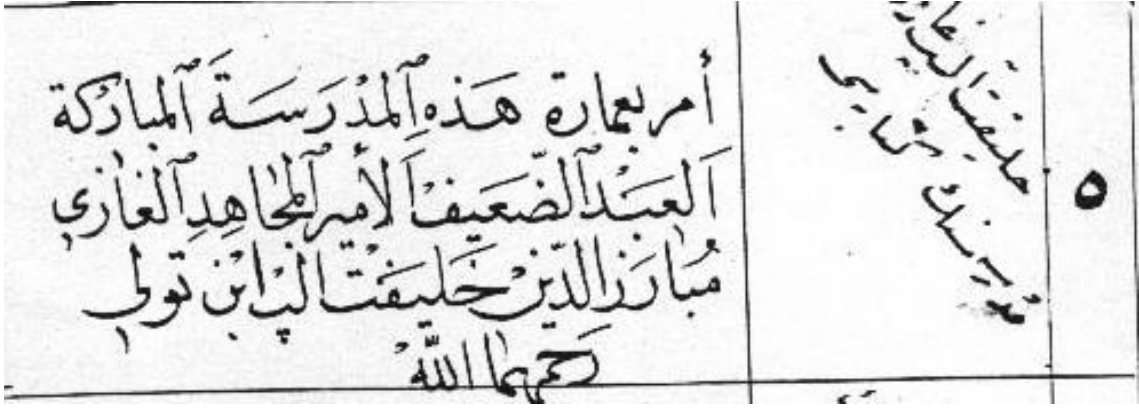 ٥
خليفت الب غازى
مدرسه‌سنك
أمر بعمارة هَذِهِ ٱلمَدْرَسَةَ ٱلمباركة
اَلعَبْدُ ٱلضّعَيفْ اَلأمير ٱلمجَاهِدِ ٱلغازي
مُبَارَزْ الدّينْ خَليفَتْ الب ابْن تولي
رَحمهما اللّٰهُ